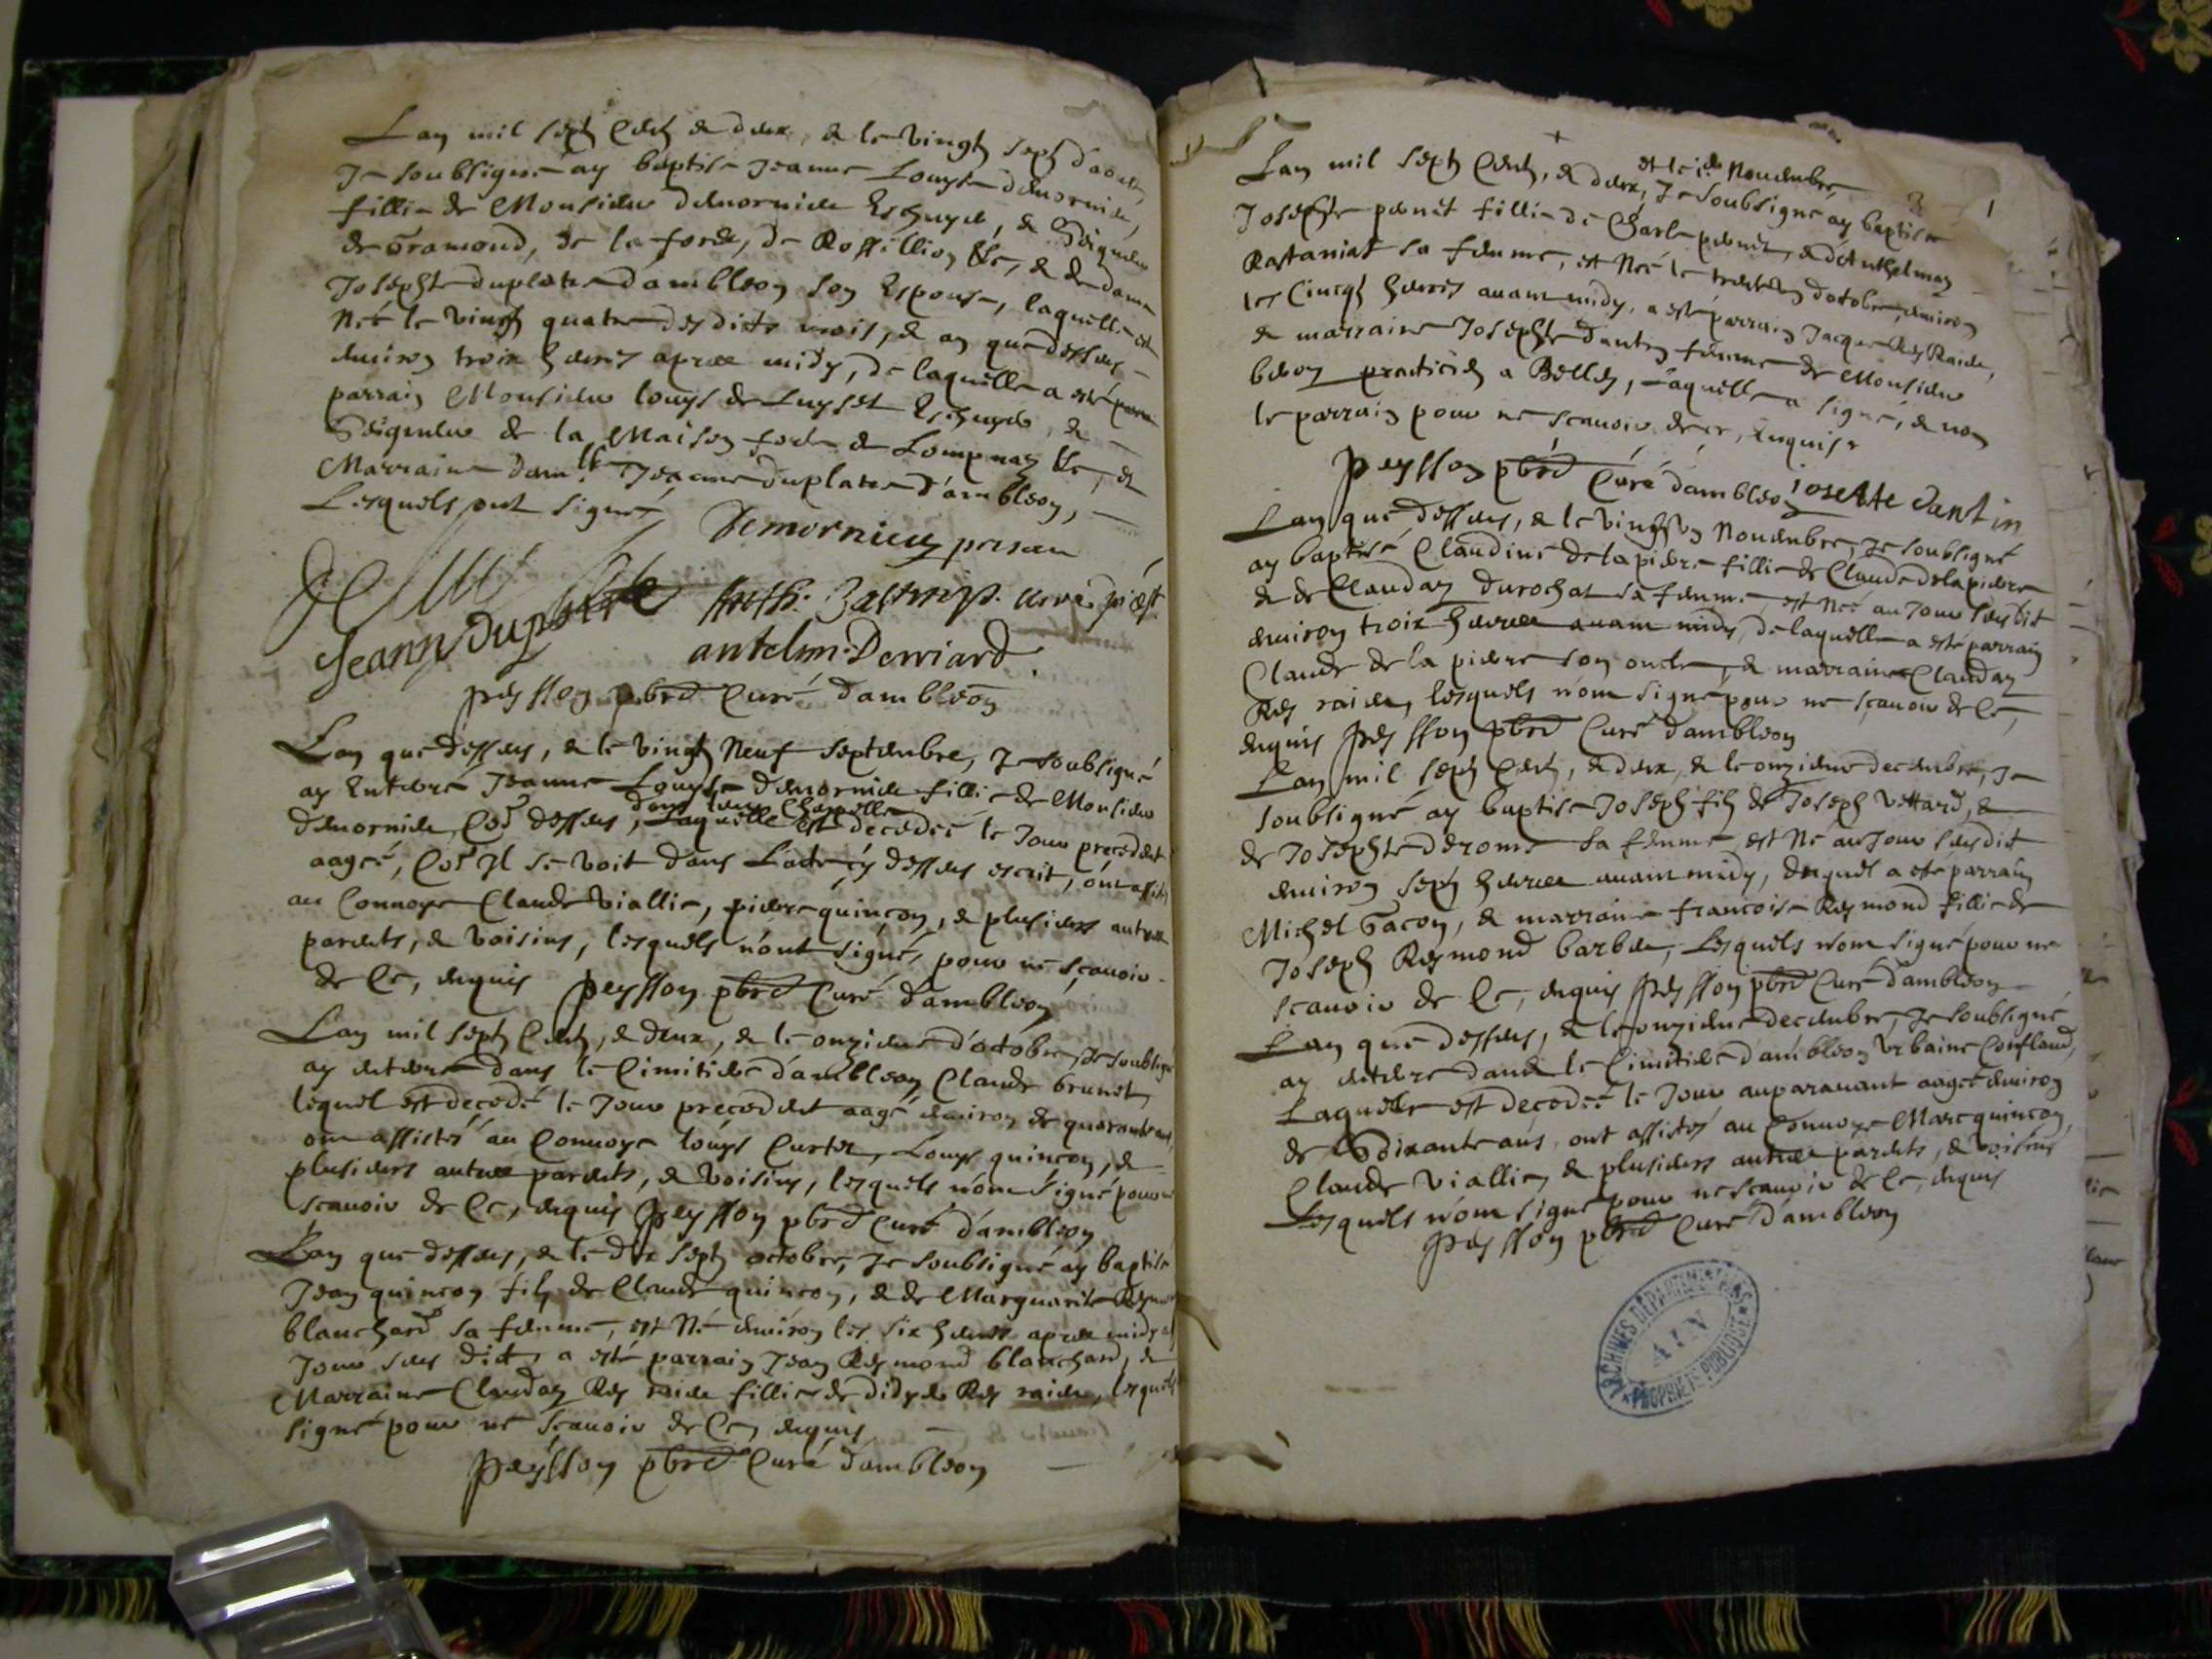 Lan mil sept Cent & deux, & le vingt sept daoust
Je soubsigné ay baptisé Jeanne Louyse demornieu,
fillie de Monsieur demornieu Escuyer, & Seigneur
de Gramond, de la forest, de Rossillion &c, & de dame
Josephte duplatre dambleon son Espouse, laquelle est
Née le vingt quatre desdits mois, & an que dessus
environ trois heures apres midy, de laquelle a esté
parrain Monsieur louys de Luyset Escuyer, &
Seigneur de la Maison forte de Lompnaz &c, et
Marraine dam.lle Jeanne duplatre d'ambleon,
Lesquels ont signé, Demornieu
Jeann Duplatre
antelm Derriard
peysson pbre Curé dambleon
Lan que dessus, & le vingt Neuf septembre, Je soubsigné
ay Enterré Jeanne Louyse demornieu fillie de Monsieur
dans leur Chapelle
demornieu, Coe dessus, Laquelle est decedée le Jour precedent
aagée, Coe Il se voit dans Lacte cy dessus escrit, ont assisté
au Convoye Claude Viallie, pierre quinçon, & plusieurs autres
parents, & voisins, lesquels n'ont signé, pour ne sçavoir
de Ce, enquis peysson pbre Curé dambleon
Lan mil sept Cent, & deux, & le onzieme d'octobre Je soubsigné
ay enterré dans le Cimitiere d'ambleon Claude brunet,
lequel est decedé le Jour precedent aagé environ de quarante ans,
ont assisté au Convoye louys Curtet, Louys quinçon, &
plusieurs autres parents, & voisins, lesquels n'ont signé pour ne
scavoir de Ce, enquis peysson pbre Curé d'ambleon
Lan que dessus, & le dix sept octobre, Je soubsigné ay baptisé
Jean quincon fils de Claude quincon, & de Marguerite Reymond
blanchard sa femme, est Né environ les six heures apres midy au
Jour sus dict, a esté parrain Jean Reymond blanchard, &
Marraine Clauday Rey raide fillie de didyer Rey raide, lesquels
signé pour ne scavoir de Ce, enquis
peysson pbre Curé dambleon
et le i.er Novembre
Lan mil sept Cent, & deux, Je soubsigné ay baptisé
Josephte penet fillie de Charle penet, & d'Anthelmaz
Rastaniat sa femme, est Née le trente un d'octobre, environ
les Cincq heures avant midy, a esté parrain Jacque Rey Raide,
& marraine Josephte Dantin femme de Monsieur
beson practicien a Belley, Laquelle a signé, & non
le parrain pour ne scavoir de ce, Enquise
peysson pbre Curé dambleon josette dantin
Lan que dessus, & le vingt un Novembre, Je soubsigné
ay baptisé Claudine delapierre fillie de Claude delapierre
& de Clauday durochat sa femme, est Née au Jour susdit
environ trois heures avant midy, de laquelle a esté parrain
Claude de la pierre son oncle, & marraine Clauday
Rey raide, lesquels n'ont signé pour ne sçavoir de Ce,
enquis peysson pbre Curé dambleon
Lan mil sept Cent, & deux, & le onzieme decembre, Je
soubsigné ay baptisé Joseph fils de Joseph Vettard, &
de Josephte derome sa femme est Né au Jour susdit
environ sept heures avant midy, duquel a esté parrain
Michel Gacon, & marraine francoise Reymond fillie de
Joseph Reymond barbier, Lesquels n'ont signé pour ne
scavoir de Ce, enquis peysson pbre Curé dambleon
Lan que dessus, & le onzieme decembre, Je soubsigné
ay enterré dans le Cimitiere d'ambleon Urbaine Couffland,
Laquelle est decedée le Jour auparavant aagée environ
de Soixante ans, ont assistés au Convoye Marc quincon
Claude Viallie, & plusieurs autres parents, & voisins
Lesquels n'ont signé pour ne scavoir de Ce, enquis
peysson pbre Curé d'ambleon
ARCHIVES DEPARTEMENTALES
AIN
PROPRIETE PUBLIQUE